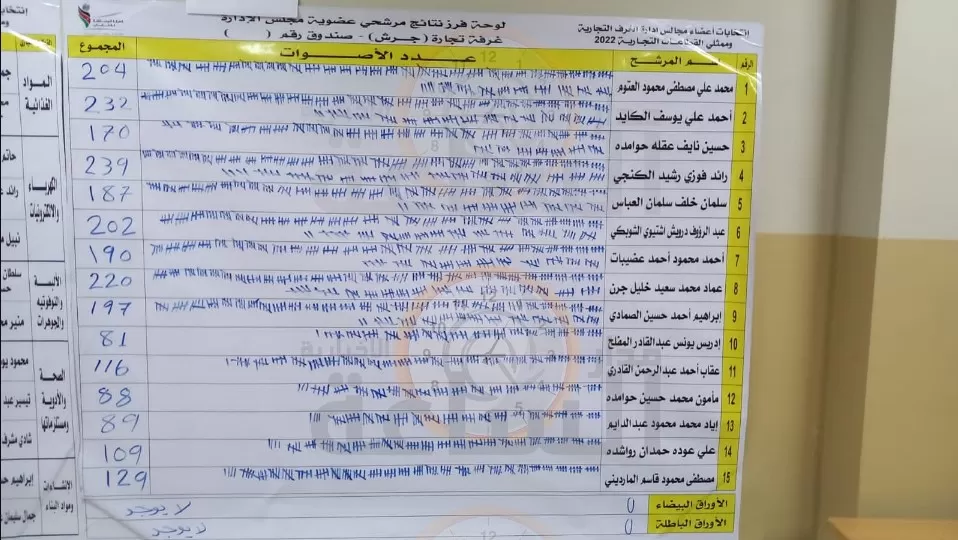 انتخابات أعضاء مجالس إدارة الغرف التجارية
وممثلي القطاعات التجارية 2022
لوحة فرز نتائج مرشحي عضوية مجلس الإدارة
غرفة تجارة (جرش) - صندوق رقم ( )
الرقم اسم المرشح عدد الأصوات المجموع
1 محمد علي مصطفى محمود العتوم 204
2 أحمد علي يوسف الكايد 232
3 حسين نايف عقله حوامده 170
4 رائد فوزي رشيد الكنجي 239
5 سلمان خلف سلمان العباس 187
6 عبد الرؤوف درويش اشتيوي الشوبكي 202
7 أحمد محمود أحمد عضيبات 190
8 عماد محمد سعيد خليل جرن 220
9 ابراهيم أحمد حسين الصمادي 197
10 إدريس يونس عبدالقادر المفلح 81
11 عقاب أحمد عبدالرحمن القادري 116
12 مأمون محمد حسين حوامده 88
13 إياد محمد محمود عبدالدايم 89
14 علي عوده حمدان رواشده 109
15 مصطفى محمود قاسم المارديني 129
الأوراق البيضاء 0 لا يوجد
الأوراق الباطلة 0 لا يوجد
المواد
الغذائية
الكهرباء
والالكترونيات
نبيل
الألبسة
والمجوهرات
سلطان
منير
الصحة
والأدوية
ومستلزماتها
محمود
تيسير عبد
شادي مشرف
الانشاءات
ومواد البناء
إبراهيم
جمال سليمان